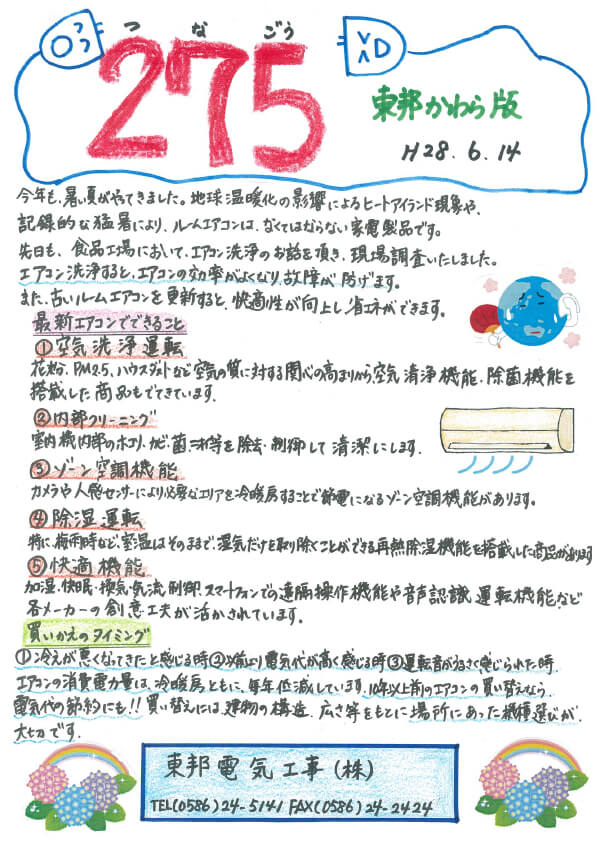 つなごう
275
東邦かわら版
H28.6.14
今年も、暑い夏がやってきました。地球温暖化の影響によるヒートアイランド現象や、
記録的な猛暑により、ルームエアコンは、なくてはならない家電製品です。
先日も、食品工場において、エアコン洗浄のお話を頂き、現場調査いたしました。
エアコン洗浄すると、エアコンの効率がよくなり、故障が防げます。
また、古いルームエアコンを更新すると、快適性が向上し、省エネができます。
最新エアコンでできること
①空気洗浄運転
花粉、PM2.5、ハウスダストなど空気の質に対する関心の高まりから、空気清浄機能、除菌機能を
搭載した商品もでてきています。
②内部クリーニング
室内機内部のホコリ、カビ、菌、ニオイ等を除去・制御して清潔にします。
③ゾーン空調機能
カメラや人感センサーにより必要なエリアを冷暖房することで節電になるゾーン空調機能があります。
④除湿運転
特に梅雨時など、室温はそのままで、湿気だけを取り除くことができる再熱除湿機能を搭載した商品があります
⑤快適機能
加湿・快眠・換気・気流制御、スマートフォンでの遠隔操作機能や音声認識運転機能など
各メーカーの創意工夫が活かされています。
買いかえのタイミング
①冷えが悪くなってきたと感じる時②以前より電気代が高く感じる時③運転音がうるさく感じられた時
エアコンの消費電力量は、冷暖房ともに、毎年低減しています。10年以上前のエアコンの買い替えなら、
電気代の節約にも!!買い替えには、建物の構造、広さ等をもとに場所にあった機種選びが、
大切です。
東邦電気工事(株)
TEL(0586)24-5141 FAX(0586)24-2424